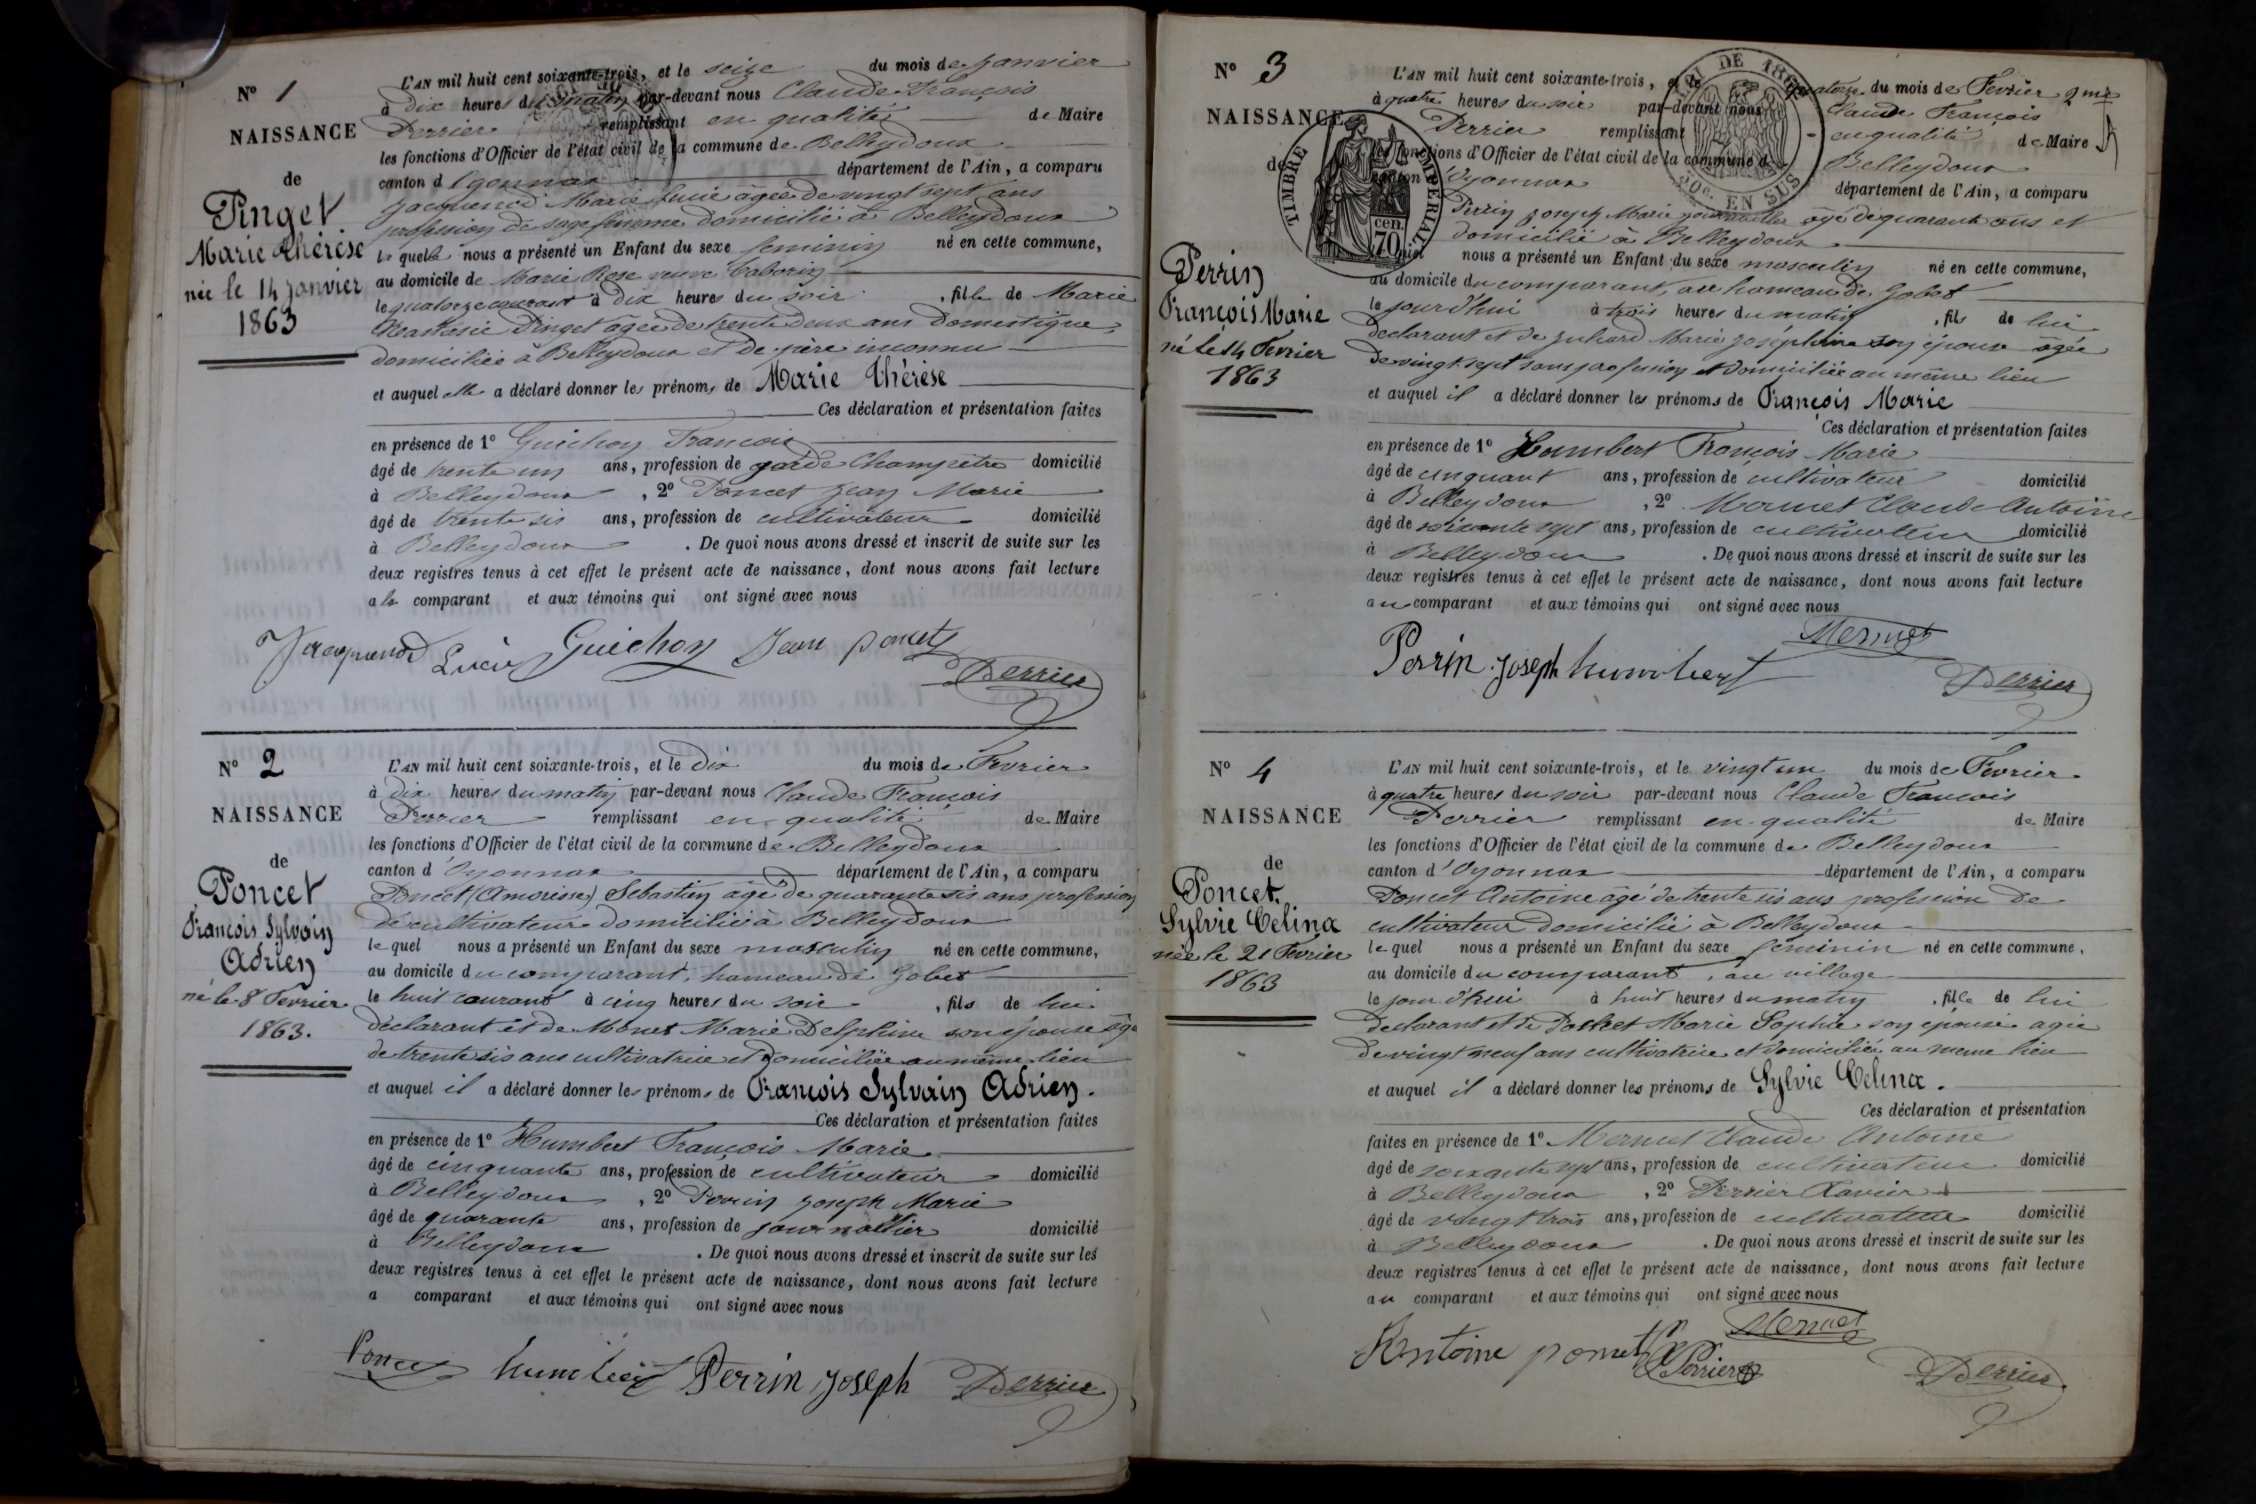 N° 1
NAISSANCE
de
Pinget
Marie Thérèse
née le 14 janvier
1863
L'AN mil huit cent soixante-trois, et le seize du mois de Janvier
à dix heures du matin par-devant nous Claude François
Perrier remplissant en qualité de Maire
les fonctions d'Officier de l'état civil de la commune de Belleydoux
canton d'Oyonnax département de l'Ain, a comparu
Marie Lucie âgée de vingt sept ans
profession de sage femme domiciliée à Belleydoux
la quelle nous a présenté un Enfant du sexe feminin né en cette commune,
au domicile de Marie Rose veuve
le quatorze courant à dix heures du soir, fille de Marie
Pinget âgée de trente deux ans Domestique
domiciliée à Belleydoux et de père inconnu
et auquel elle a déclaré donner les prénoms de Marie Thérèse
Ces déclaration et présentation faites
en présence de 1° Guichon François
âgé de trente un ans, profession de garde Champêtre domicilié
à Belleydoux, 2° Poncet Jean Marie
âgé de trente sis ans, profession de cultivateur domicilié
à Belleydoux. De quoi nous avons dressé et inscrit de suite sur les
deux registres tenus à cet effet le présent acte de naissance, dont nous avons fait lecture
a la comparant et aux témoins qui ont signé avec nous
Lucie Guichon Jean poncet
Perrier
N° 2
NAISSANCE
de
Poncet
François Sylvain
Adrien
né le 8 Fevrier
1863.
L'AN mil huit cent soixante-trois, et le dix du mois de Fevrier
à dix heures du matin par-devant nous Claude François
Perrier remplissant en qualité de Maire
les fonctions d'Officier de l'état civil de la commune de Belleydoux
canton d'Oyonnax département de l'Ain, a comparu
Poncet (Amorisse) Sebastien âgé de quarante sis ans profession
de cultivateur domicilié à Belleydoux
le quel nous a présenté un Enfant du sexe masculin né en cette commune,
au domicile du comparant, hameau de Gobet
le huit courant à cinq heures du soir, fils de lui
déclarant et de Monet Marie Delphine son épouse âgée
de trente sis ans cultivatrice et domiciliée au même lieu
et auquel il a déclaré donner les prénoms de François Sylvain Adrien.
Ces déclaration et présentation faites
en présence de 1° Humbert François Marie
âgé de cinquante ans, profession de cultivateur domicilié
à Belleydoux, 2° Perrin Joseph Marie
âgé de quarante ans, profession de journallier domicilié
à Belleydoux. De quoi nous avons dressé et inscrit de suite sur les
deux registres tenus à cet effet le présent acte de naissance, dont nous avons fait lecture
a comparant et aux témoins qui ont signé avec nous
Poncet humbert Perrin joseph Perrier
N° 3
NAISSANCE
de
Perrin
François Marie
né le 14 Fevrier
1863
TIMBRE IMPERIAL
70 cen.
LOI DE 1862
10c. EN SUS
L'AN mil huit cent soixante-trois, et le quatorze du mois de Fevrier
à quatre heures du soir par-devant nous Claude François
Perrier remplissant en qualité de Maire
les fonctions d'Officier de l'état civil de la commune de Belleydoux
canton d'Oyonnax département de l'Ain, a comparu
Perrin Joseph Marie journallier âgé de quarante ans et
domicilié à Belleydoux
quel nous a présenté un Enfant du sexe masculin né en cette commune,
au domicile du comparant, au hameau de Gobet
le jourd'hui à trois heures du matin, fils de lui
declarant et de Marie Joséphine son épouse âgée
de vingt sept sans profession et domiciliée au même lieu
et auquel il a déclaré donner les prénoms de François Marie
Ces déclaration et présentation faites
en présence de 1° Humbert François Marie
âgé de cinquant ans, profession de cultivateur domicilié
à Belleydoux, 2° Mermet Claude Antoine
âgé de soixante sept ans, profession de cultivateur domicilié
à Belleydoux. De quoi nous avons dressé et inscrit de suite sur les
deux registres tenus à cet effet le présent acte de naissance, dont nous avons fait lecture
au comparant et aux témoins qui ont signé avec nous
Mermet
Perrin joseph humbert
Perrier
N° 4
NAISSANCE
de
Poncet.
Sylvie Celina
née le 21 Fevrier
1863
L'AN mil huit cent soixante-trois, et le vingt un du mois de Fevrier
à quatre heures du soir par-devant nous Claude François
Perrier remplissant en qualité de Maire
les fonctions d'Officier de l'état civil de la commune de Belleydoux
canton d'Oyonnax département de l'Ain, a comparu
Poncet Antoine âgé de trente sis ans profession de
cultivateur domicilié à Belleydoux
le quel nous a présenté un Enfant du sexe feminin né en cette commune,
au domicile du comparant, au village
le jour d'hui à huit heures du matin, fille de lui
declarant et de Marie Sophie son épouse agée
de vingt neuf ans cultivatrice et domiciliée au meme lieu
et auquel il a déclaré donner les prénoms de Sylvie Celina.
Ces déclaration et présentation
faites en présence de 1° Mermet Claude Antoine
âgé de soixante sept ans, profession de cultivateur domicilié
à Belleydoux, 2° Perrier Xavier
âgé de vingt trois ans, profession de cultivateur domicilié
à Belleydoux. De quoi nous avons dressé et inscrit de suite sur les
deux registres tenus à cet effet le présent acte de naissance, dont nous avons fait lecture
au comparant et aux témoins qui ont signé avec nous
Mermet
Antoine poncet
Perrier
Perrier